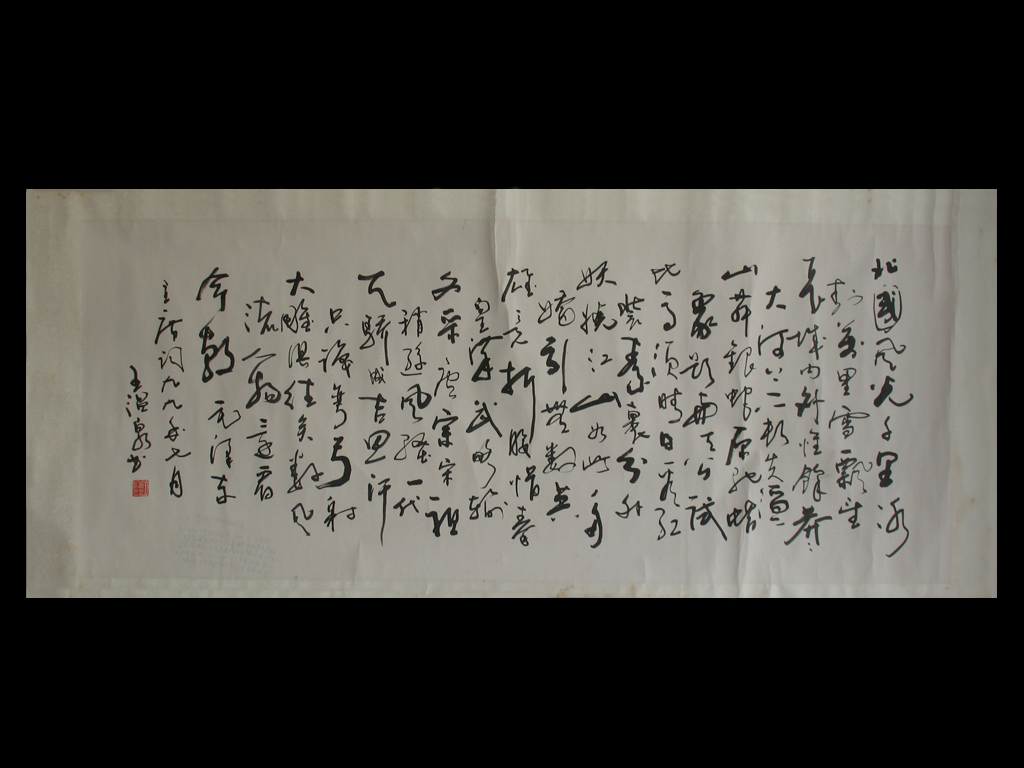 北國風光千里冰
封萬里雪飄望
長城内外惟餘莽〻
大河上下頓失滔〻
山舞銀蛇原馳蠟
象欲與天公試
比高須晴日看紅
裝素裹分外
妖嬈江山如此多
嬌引無數英
雄競折腰惜秦
皇漢武略輸
文采唐宗宋祖
稍遜風騷一代
天驕成吉思汗
只識彎弓射
大雕俱往矣數風
流人物還看
今朝毛澤东
主席词九九年七月
王温泉书